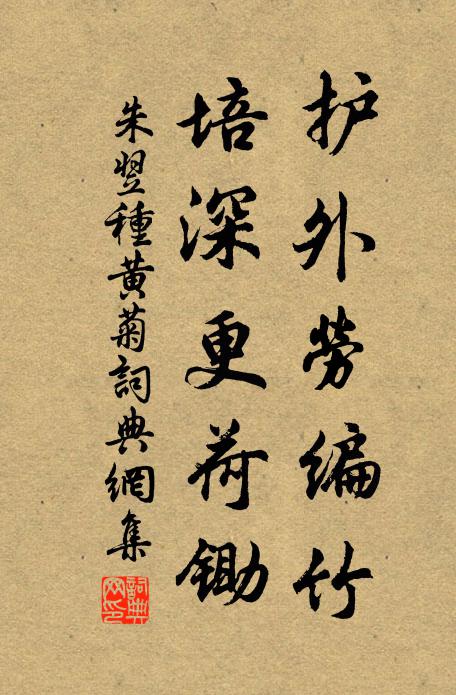 护外勞编竹
培深更荷锄
朱翌種黄菊詞典網集
詞典网印